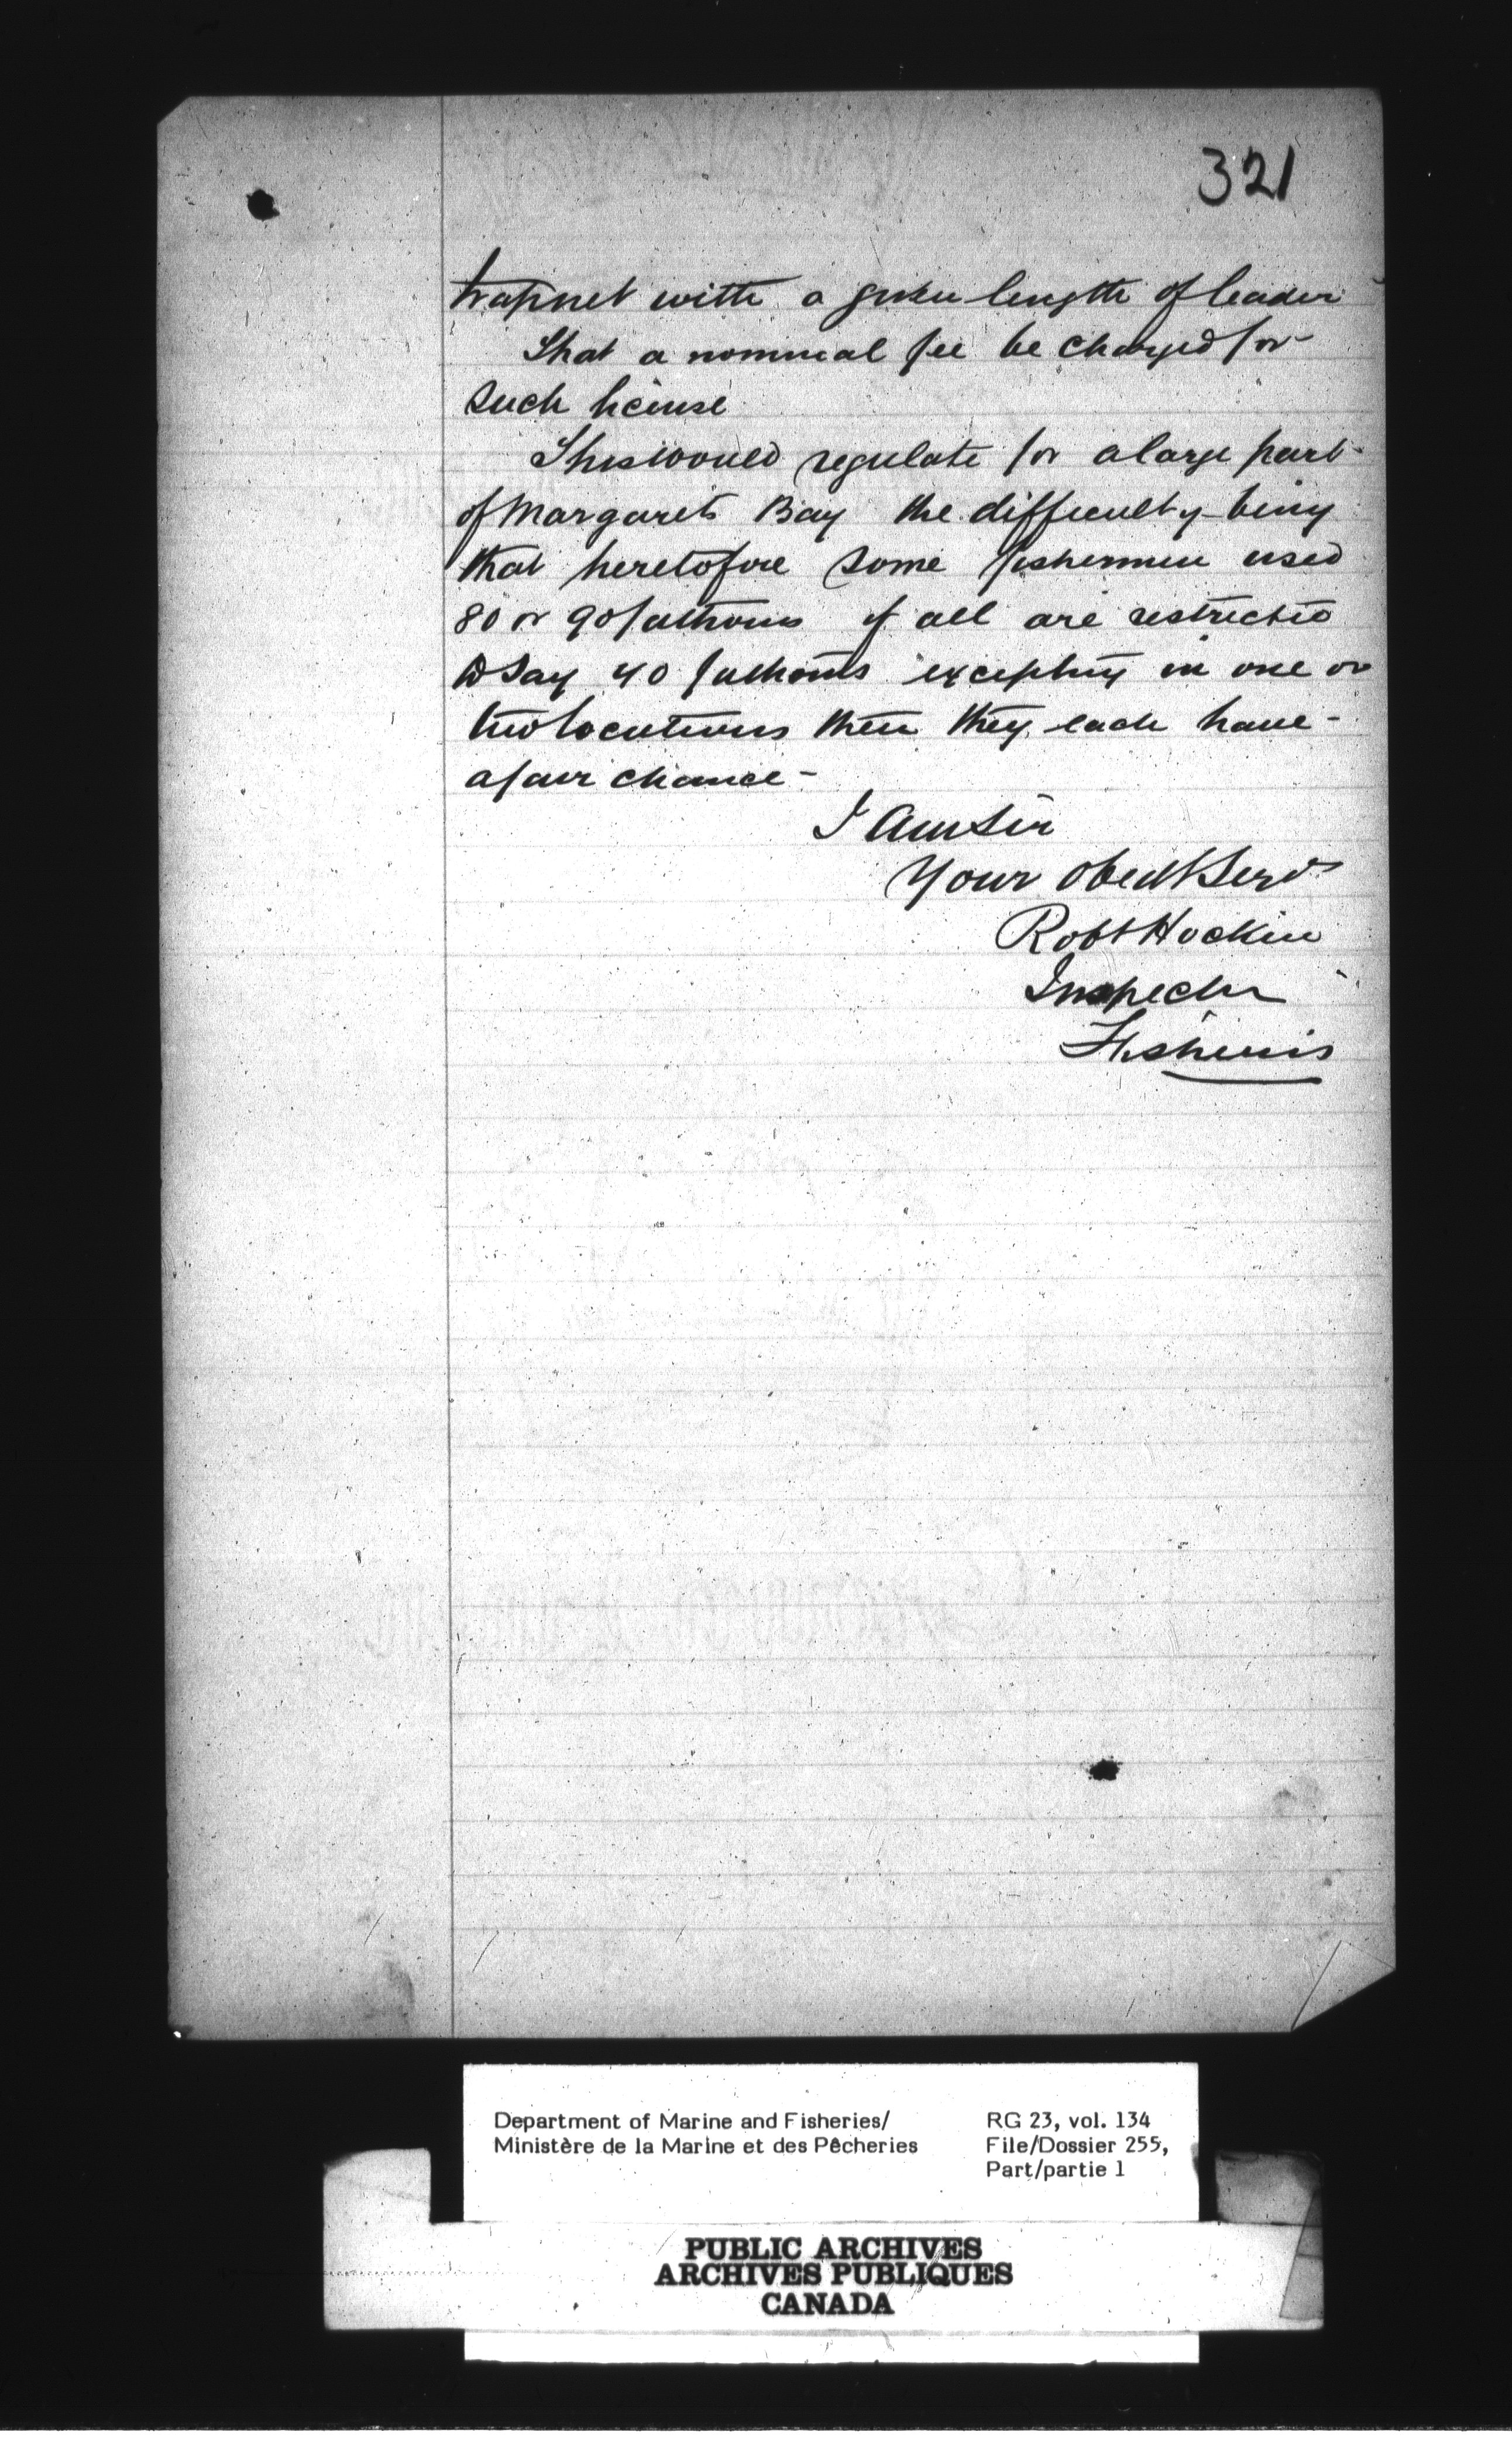 321
trapnet with a given length of leader
That a nominal fee be charged for
such license
This would regulate for a large part
of Margarets Bay the difficulty being
that heretofore some fishermen used
80 or 90 fathoms if all are restricted
to say 40 fathoms excepting in one or
two locations then they each have
a fair chance -
I am Sir
Your Obedt Servt
Robt Hockin
Inspector
Fisheries
Department of Marine and Fisheries/ RG 23, vol. 134
Ministère de la Marine et des Pêcheries File/Dossier 255,
Part/partie 1
PUBLIC ARCHIVES
ARCHIVES PUBLIQUES
CANADA